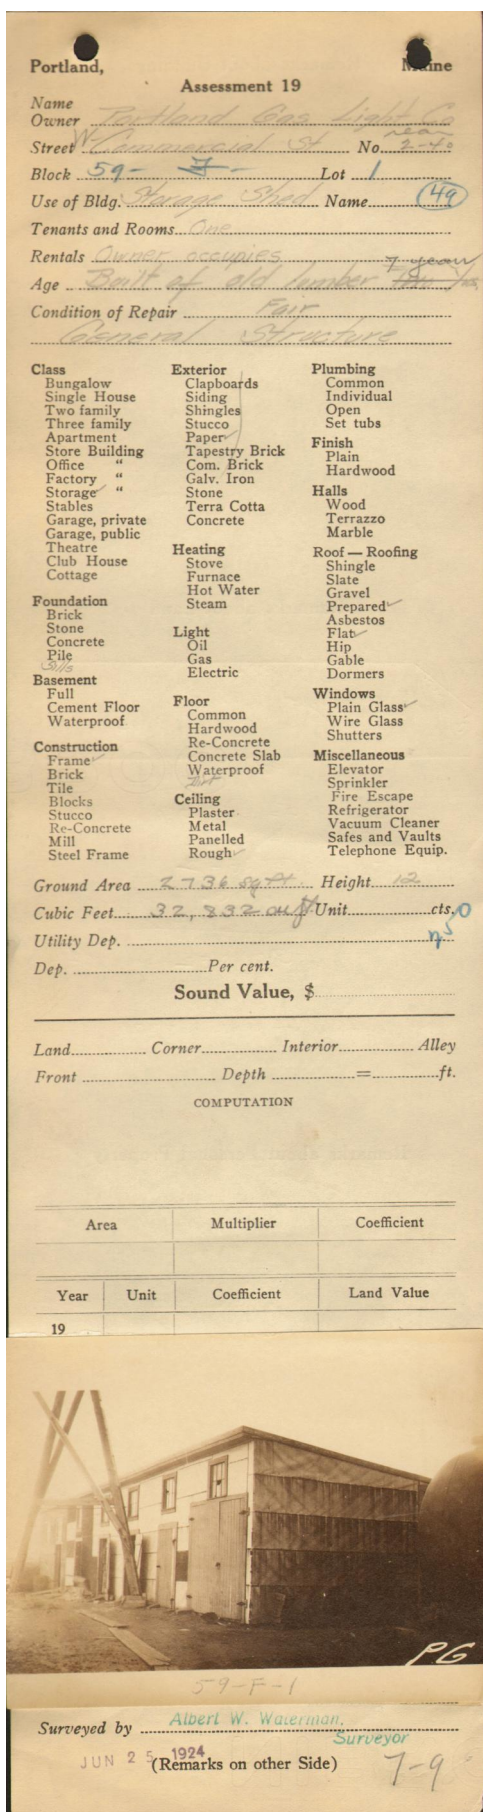 Portland, Maine
Assessment 19
Name
Owner Portland Gas Light Co
rear
Street W- Commercial St No. 2-40
Block 59- F - Lot 1
Use of Bldg. Storage Shed Name 49
Tenants and Rooms One
Rentals Owner occupies 7 years
Age Built of old lumber
Condition of Repair Fair
General Structure
Class
Bungalow
Single House
Two family
Three family
Apartment
Store Building
Office "
Factory "
Storage ✓ "
Stables
Garage, private
Garage, public
Theatre
Club House
Cottage
Foundation
Brick
Stone
Concrete
Pile
Sills
Basement
Full
Cement Floor
Waterproof
Construction
Frame ✓
Brick
Tile
Blocks
Stucco
Re-Concrete
Mill
Steel Frame
Exterior
Clapboards
Siding
Shingles
Stucco
Paper ✓
Tapestry Brick
Com. Brick
Galv. Iron
Stone
Terra Cotta
Concrete
Heating
Stove
Furnace
Hot Water
Steam
Light
Oil
Gas
Electric
Floor
Common
Hardwood
Re-Concrete
Concrete Slab
Waterproof
Dirt
Ceiling
Plaster
Metal
Panelled
Rough ✓
Plumbing
Common
Individual
Open
Set tubs
Finish
Plain
Hardwood
Halls
Wood
Terrazzo
Marble
Roof — Roofing
Shingle
Slate
Gravel
Prepared ✓
Asbestos
Flat ✓
Hip
Gable
Dormers
Windows
Plain Glass ✓
Wire Glass
Shutters
Miscellaneous
Elevator
Sprinkler
Fire Escape
Refrigerator
Vacuum Cleaner
Safes and Vaults
Telephone Equip.
Ground Area 2736 sq ft Height 12
Cubic Feet 32,832 cu ft Unit cts.
Utility Dep.
Dep. Per cent.
Sound Value, $
Land Corner Interior Alley
Front Depth = ft.
COMPUTATION
Area Multiplier Coefficient
Year Unit Coefficient Land Value
19
PG
59-F-1
Surveyed by Albert W. Waterman,
Surveyor
JUN 25 1924 (Remarks on other Side) 7-9